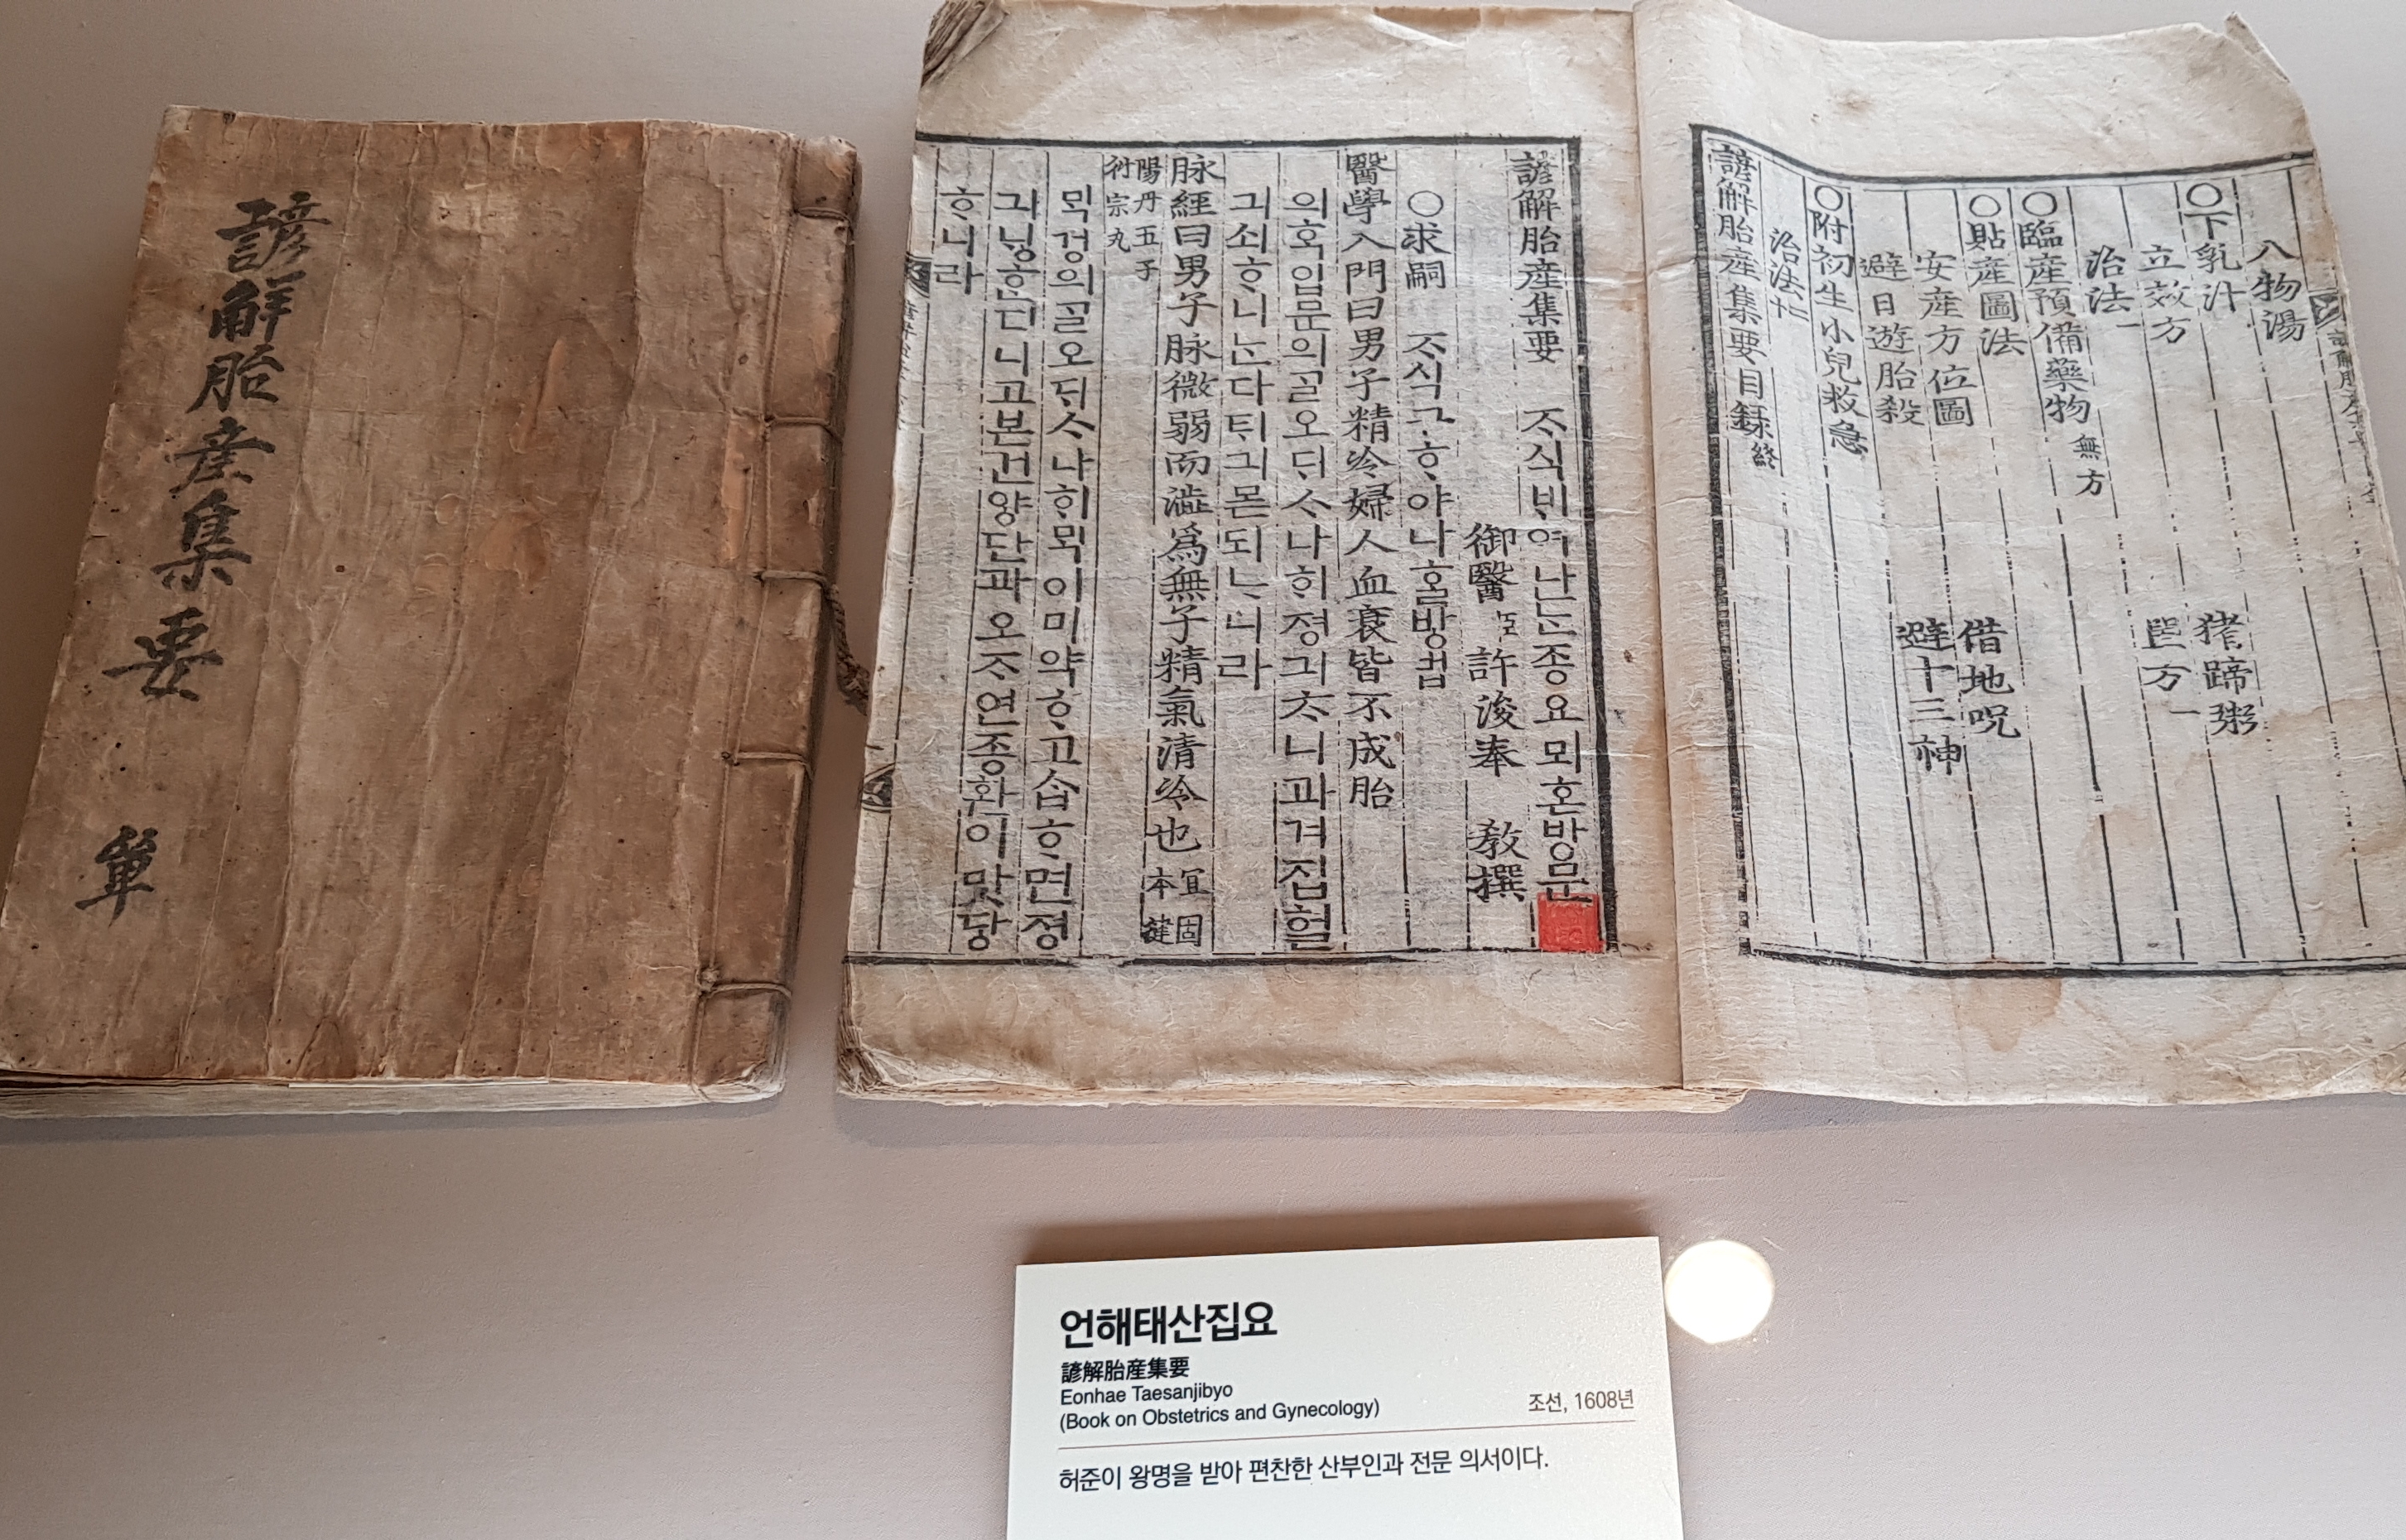 諺解胎産集要 單
八物湯
○下乳汁 猪蹄粥
立效方 單方一
治法一
○臨産預備藥物 無方
○貼産圖法 借地呪
安産方位圖 避十三神
避日遊胎殺
○附初生小兒救急
治法十二
諺解胎産集要目録終
諺解胎産集要 ᄌᆞ식ᄇᆡ여난ᄂᆞᆫ종요뫼혼방문
御醫臣許浚奉 敎撰
○求嗣 ᄌᆞ식구ᄒᆞ야나홀방법
醫學入門曰男子精冷婦人血衰皆不成胎
의ᄒᆞᆨ입문의ᄀᆞᆯ오ᄃᆡᄉᆞ나ᄒᆡ졍긔ᄎᆞ니과겨집혈
긔쇠ᄒᆞ니ᄂᆞᆫ다ᄐᆡ긔몯되ᄂᆞ니라
脉經曰男子脉微弱而澁爲無子精氣清冷也 宜固本健
陽丹五子衍宗丸
ᄆᆡᆨ경의ᄀᆞᆯ오ᄃᆡᄉᆞ나ᄒᆡᄆᆡᆨ이미약ᄒᆞ고습ᄒᆞ면졍
긔닝ᄒᆞᆫ디니고본건양단과오ᄌᆞ연종환이맛당
ᄒᆞ니라
언해태산집요
諺解胎産集要
Eonhae Taesanjibyo
(Book on Obstetrics and Gynecology)
조선, 1608년
허준이 왕명을 받아 편찬한 산부인과 전문 의서이다.